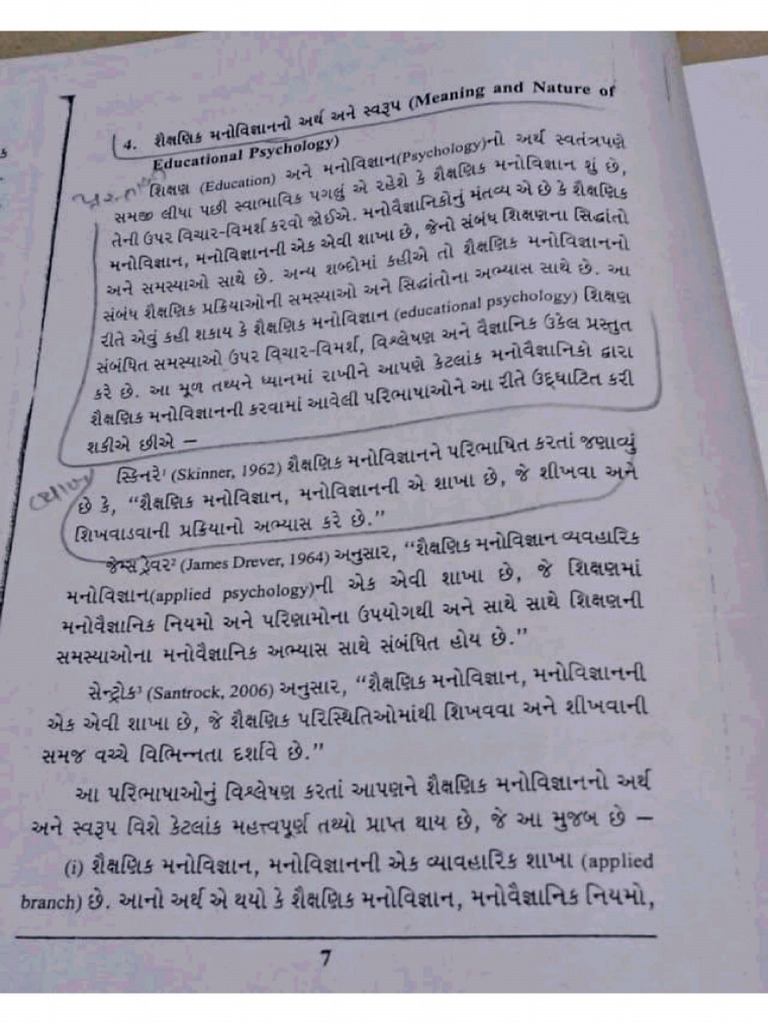 4. શૈક્ષણિક મનોવિજ્ઞાનનો અર્થ અને સ્વરૂપ (Meaning and Nature of
Educational Psychology)
શિક્ષણ (Education) અને મનોવિજ્ઞાન(Psychology)નો અર્થ સ્વતંત્રપણે
સમજી લીધા પછી સ્વાભાવિક પગલું એ રહેશે કે શૈક્ષણિક મનોવિજ્ઞાન શું છે,
તેની ઉપર વિચાર-વિમર્શ કરવો જોઈએ. મનોવૈજ્ઞાનિકોનું મંતવ્ય એ છે કે શૈક્ષણિક
મનોવિજ્ઞાન, મનોવિજ્ઞાનની એક એવી શાખા છે, જેનો સંબંધ શિક્ષણના સિદ્ધાંતો
અને સમસ્યાઓ સાથે છે. અન્ય શબ્દોમાં કહીએ તો શૈક્ષણિક મનોવિજ્ઞાનનો
સંબંધ શૈક્ષણિક પ્રક્રિયાઓની સમસ્યાઓ અને સિદ્ધાંતોના અભ્યાસ સાથે છે. આ
રીતે એવું કહી શકાય કે શૈક્ષણિક મનોવિજ્ઞાન (educational psychology) શિક્ષણ
સંબંધિત સમસ્યાઓ ઉપર વિચાર-વિમર્શ, વિશ્લેષણ અને વૈજ્ઞાનિક ઉકેલ પ્રસ્તુત
કરે છે. આ મૂળ તથ્યને ધ્યાનમાં રાખીને આપણે કેટલાંક મનોવૈજ્ઞાનિકો દ્વારા
શૈક્ષણિક મનોવિજ્ઞાનની કરવામાં આવેલી પરિભાષાઓને આ રીતે ઉદ્ઘાટિત કરી
શકીએ છીએ –
સ્કિનરે¹ (Skinner, 1962) શૈક્ષણિક મનોવિજ્ઞાનને પરિભાષિત કરતાં જણાવ્યું
છે કે, “શૈક્ષણિક મનોવિજ્ઞાન, મનોવિજ્ઞાનની એ શાખા છે, જે શીખવા અને
શિખવાડવાની પ્રક્રિયાનો અભ્યાસ કરે છે.”
જેમ્સ ડ્રેવર² (James Drever, 1964) અનુસાર, “શૈક્ષણિક મનોવિજ્ઞાન વ્યવહારિક
મનોવિજ્ઞાન(applied psychology)ની એક એવી શાખા છે, જે શિક્ષણમાં
મનોવૈજ્ઞાનિક નિયમો અને પરિણામોના ઉપયોગથી અને સાથે સાથે શિક્ષણની
સમસ્યાઓના મનોવૈજ્ઞાનિક અભ્યાસ સાથે સંબંધિત હોય છે.”
સેન્ટ્રોક³ (Santrock, 2006) અનુસાર, “શૈક્ષણિક મનોવિજ્ઞાન, મનોવિજ્ઞાનની
એક એવી શાખા છે, જે શૈક્ષણિક પરિસ્થિતિઓમાંથી શિખવવા અને શીખવાની
સમજ વચ્ચે વિભિન્નતા દર્શાવે છે.”
આ પરિભાષાઓનું વિશ્લેષણ કરતાં આપણને શૈક્ષણિક મનોવિજ્ઞાનનો અર્થ
અને સ્વરૂપ વિશે કેટલાંક મહત્ત્વપૂર્ણ તથ્યો પ્રાપ્ત થાય છે, જે આ મુજબ છે –
(i) શૈક્ષણિક મનોવિજ્ઞાન, મનોવિજ્ઞાનની એક વ્યાવહારિક શાખા (applied
branch) છે. આનો અર્થ એ થયો કે શૈક્ષણિક મનોવિજ્ઞાન, મનોવૈજ્ઞાનિક નિયમો,
7